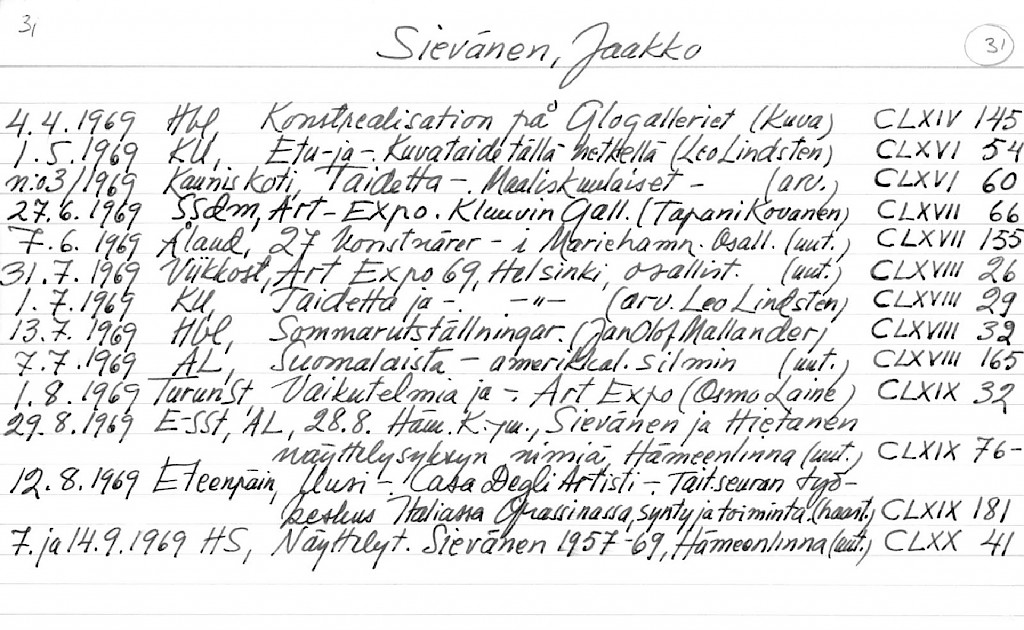 31
Sievänen, Jaakko
31
4.4.1969 Hbl, Konstrealisation på Glogalleriet (Kuva) CLXIV 145
1.5.1969 KU, Etu-ja-. Kuvataide tällä hetkellä (Leo Lindsten) CLXVI 54
n:o 3/1969 Kaunis Koti, Taidetta -. Maaliskuulaiset - (arv.) CLXVI 60
27.6.1969 SSdm, Art-Expo. Kluuvin Gall. (Tapani Kovanen) CLXVII 66
7.6.1969 Åland, 27 konstnärer - i Mariehamn. Osall. (uut.) CLXVII 155
31.7.1969 Viikkost, Art Expo 69, Helsinki, osallist. (uut.) CLXVIII 26
1.7.1969 KU, Taidetta ja -. -"- (arv. Leo Lindsten) CLXVIII 29
13.7.1969 Hbl, Sommarutställningar. (Jan Olof Mallander) CLXVIII 32
7.7.1969 AL, Suomalaista - amerikkal. silmin (uut.) CLXVIII 165
1.8.1969 TurunSt Vaikutelmia ja -. Art Expo (Osmo Laine) CLXIX 32
29.8.1969 E-SSt, AL, 28.8. Häm. K-ym., Sievänen ja Hietanen
näyttelysyksyn nimiä, Hämeenlinna (uut.) CLXIX 76-
12.8.1969 Eteenpäin, Uusi -. Casa Degli Artisti -. Taitseuran työ-
keskus Italiassa Grassinassa, synty ja toiminta. (haast.) CLXIX 181
7. ja 14.9.1969 HS, Näyttelyt. Sievänen 1957-69, Hämeenlinna (uut.) CLXX 41